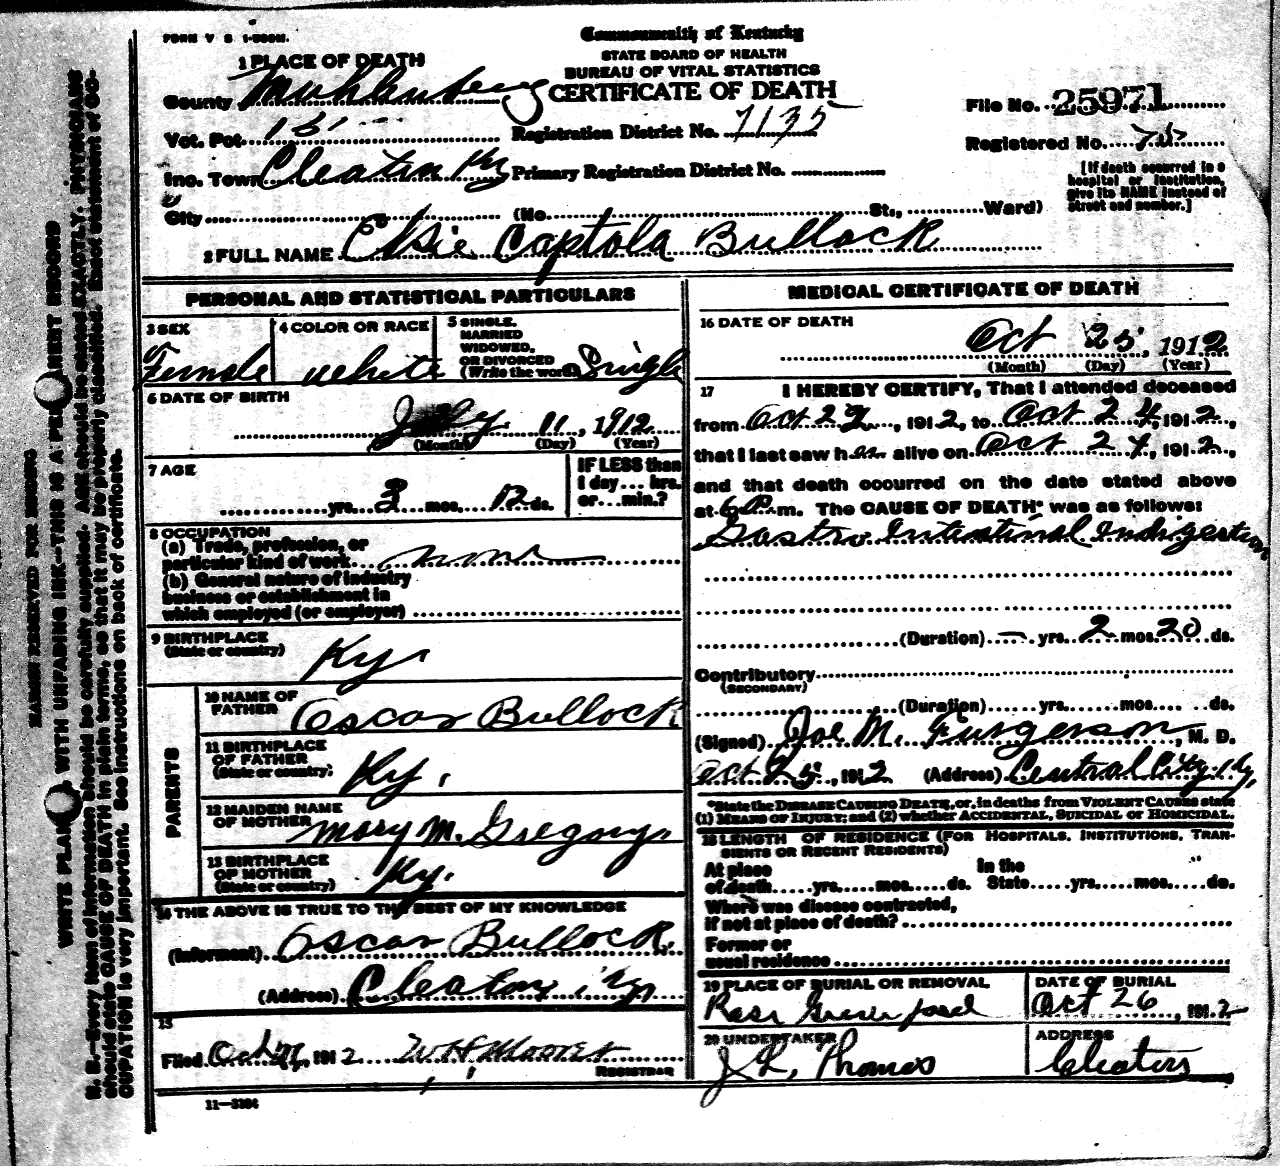 FORM V S 1-500M.
Commonwealth of Kentucky
STATE BOARD OF HEALTH
BUREAU OF VITAL STATISTICS
CERTIFICATE OF DEATH
1 PLACE OF DEATH
County Muhlenberg
Vot. Pct. 151
Inc. Town Cleaton Ky
City (No. St., Ward)
Registration District No. 1135
Primary Registration District No.
File No. 25971
Registered No.
[If death occurred in a
hospital or institution,
give its NAME instead of
street and number.]
2 FULL NAME Elsie Captola Bullock
PERSONAL AND STATISTICAL PARTICULARS
3 SEX
Female
4 COLOR OR RACE
white
5 SINGLE,
MARRIED
WIDOWED,
OR DIVORCED
(Write the word) Single
6 DATE OF BIRTH
July 11, 1912
(Month) (Day) (Year)
7 AGE
yrs. 3 mos. 12 ds.
IF LESS than
1 day... hrs.
or... min.?
8 OCCUPATION
(a) Trade, profession, or
particular kind of work none
(b) General nature of industry
business or establishment in
which employed (or employer)
9 BIRTHPLACE
(State or country)
Ky
PARENTS
10 NAME OF
FATHER
Oscar Bullock
11 BIRTHPLACE
OF FATHER
(State or country)
Ky.
12 MAIDEN NAME
OF MOTHER
Mary M. Gregory
13 BIRTHPLACE
OF MOTHER
(State or country)
Ky.
14 THE ABOVE IS TRUE TO THE BEST OF MY KNOWLEDGE
(Informant) Oscar Bullock
(Address) Cleaton, Ky
15
Filed Oct 1912 W H Moores
REGISTRAR
11-3184
MEDICAL CERTIFICATE OF DEATH
16 DATE OF DEATH
Oct 25, 1912
(Month) (Day) (Year)
17 I HEREBY CERTIFY, That I attended deceased
from Oct 22, 1912, to Oct 24, 1912,
that I last saw her alive on Oct 24, 1912,
and that death occurred on the date stated above
at 6 m. The CAUSE OF DEATH* was as follows:
Gastro Intestinal Indigestion
(Duration) — yrs. 2 mos. 20 ds.
Contributory
(SECONDARY)
(Duration) yrs. mos. ds.
(Signed) Joe M. Furgerson, M. D.
Oct 25, 1912 (Address) Central City, Ky,
*State the DISEASE CAUSING DEATH, or, in deaths from VIOLENT CAUSES state
(1) MEANS OF INJURY; and (2) whether ACCIDENTAL, SUICIDAL OR HOMICIDAL.
18 LENGTH OF RESIDENCE (FOR HOSPITALS, INSTITUTIONS, TRAN-
SIENTS OR RECENT RESIDENTS)
At place
of death yrs. mos. ds.
In the
State yrs. mos. ds.
Where was disease contracted,
if not at place of death?
Former or
usual residence
19 PLACE OF BURIAL OR REMOVAL
DATE OF BURIAL
Oct 26, 1912
20 UNDERTAKER
J L, Thomas
ADDRESS
Cleaton
MARGIN RESERVED FOR BINDING
WRITE PLAINLY WITH UNFADING INK—THIS IS A PERMANENT RECORD
N. B.—Every item of information should be carefully supplied. AGE should be stated EXACTLY. PHYSICIANS
should state CAUSE OF DEATH in plain terms, so that it may be properly classified. Exact statement of OC-
CUPATION is very important. See instructions on back of certificate.